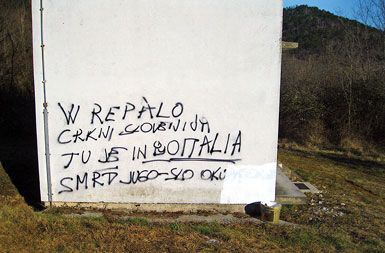 W REPALO
CRKNI SLOVENIJA
TU JE IN BO ITALIA
SMRT JUGO-SLO